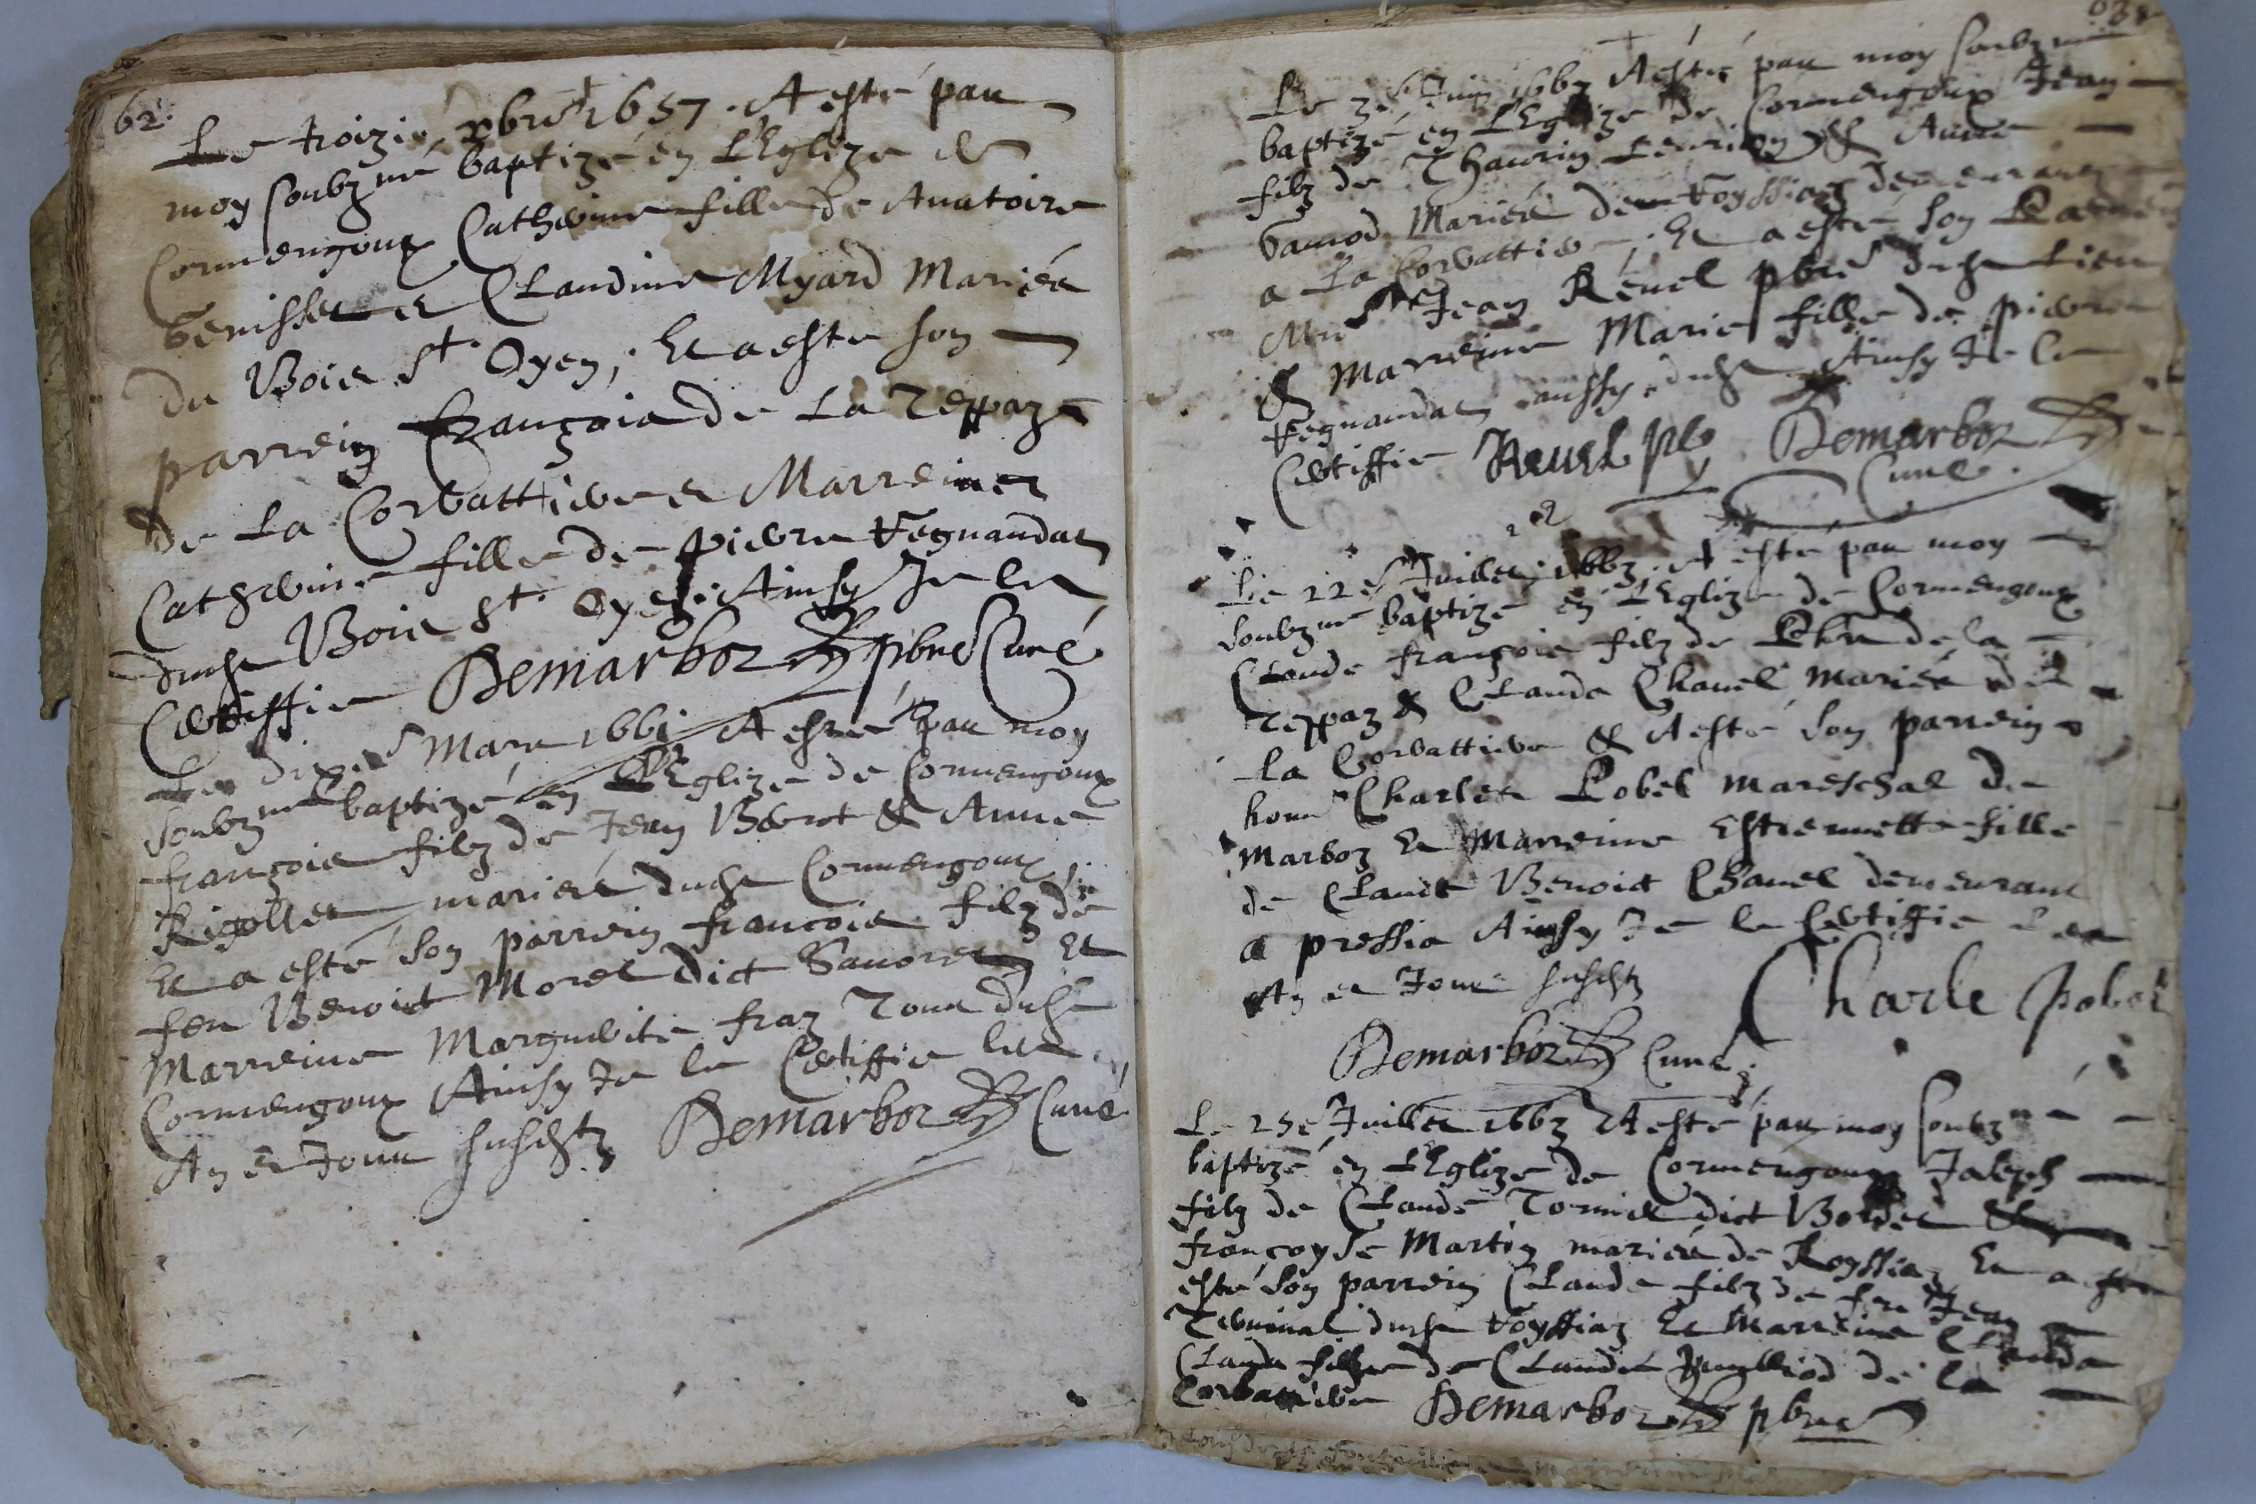 62.
Le troizie xbre 1657. A esté par
moy soubzné baptizé en L'Eglize de
Cormengoux Catherine fille de Anatoire
Venisset et Claudine Myard Mariés
du Bois St. Oyen; Et a este son
parrein François de La Teppaz
de La Corbattiere et Marreines
Catherine fille de Pierre Regnandat
dudt Bois St. Oyen; Ainsy Je le
Certiffie Demarboz pbre Curé
Le dixe Mars 1661 A esté par moy
soubzné baptizé en L'Eglize de Cormengoux
françois filz de Jean Berrot & Anne
Rigollet mariés dudt Cormengoux
Et a esté son parrein francois filz de
feu Benoist Morel dict Savoret Et
Marreine Marguerite fraz Tour dudt
Cormengoux Ainsy Je le Certiffie les
An et Jour susdtz Demarboz Curé
Le 3e Juin 1663 A esté par moy soubzné
baptizé en L'Eglize de Cormengoux Jean
filz de Thaurin & Anne
Mariés de Royssiaz demeurans
a La Corbattiere; Et a esté son Parrein
Mre Jean Revel pbre dudt Lieu
& Marreine Marie fille de Pierre
Regnandat aussy dudt Ainsy Je le
Certiffie Revel pbr Demarboz
Curé
Le 22e Juillet 1663 A esté par moy
soubzné baptizé en L'Eglize de Cormengoux
Claude françois filz de Phe de la
Teppaz & Clauda Chavel mariés de
La Corbattiere & A esté son parrein
hon Charles Pobel mareschal de
Marboz Et Marreine Estiennette fille
de Claude Benoict Chavel demeurant
a pressia Ainsy Je le Certiffie Les
An et Jour susdtz
Charle pobel
Demarboz Curé
Le 25e Juillet 1663 A esté par moy soubzné
baptizé en L'Eglize de Cormengoux Joseph
filz de Claude Tornier dict Bordet &
françoyse Martin mariés de Royssiaz Et a
esté son parrein Claude filz de feu Jean
dudt Royssiaz Et Marreine Clauda
Clauda fille de Claude de la
Corbattiere Demarboz pbre